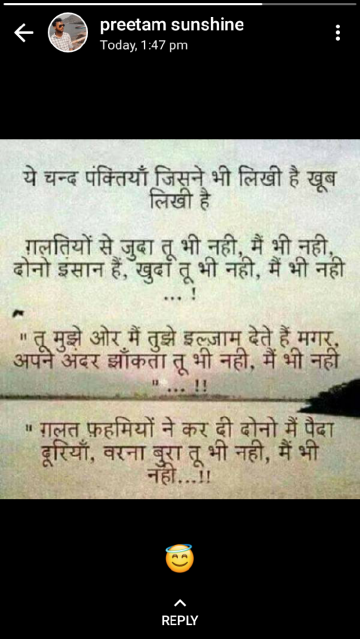 preetam sunshine
Today, 1:47 pm
ये चन्द पंक्तियाँ जिसने भी लिखी है खूब
लिखी है
ग़लतियों से जुदा तू भी नही, मैं भी नही,
दोनो इंसान हैं, खुदा तू भी नही, मैं भी नही
... !
" तू मुझे ओर मैं तुझे इल्ज़ाम देते हैं मगर,
अपने अंदर झाँकता तू भी नही, मैं भी नही
" ... !!
" ग़लत फ़हमियों ने कर दी दोनो मैं पैदा
दूरियाँ, वरना बुरा तू भी नही, मैं भी
नही...!!
REPLY